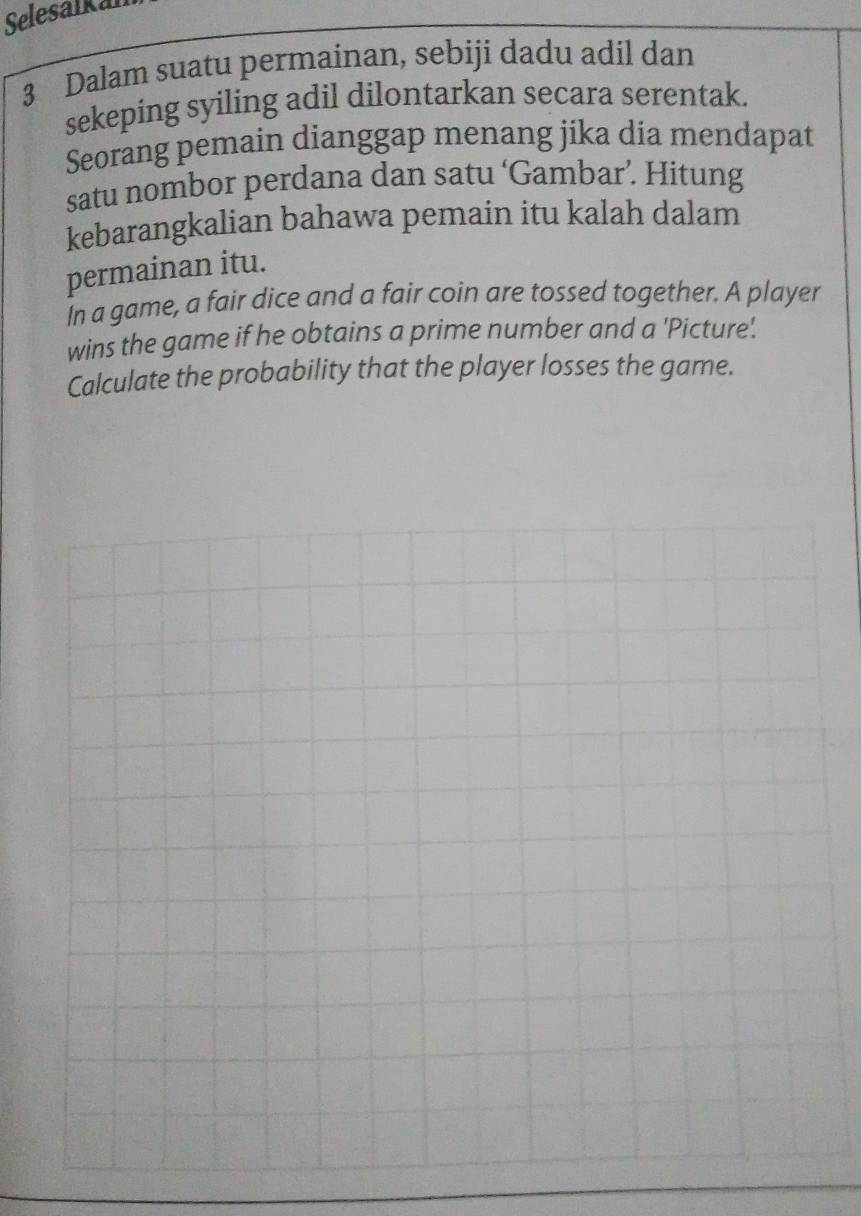 3 Dalam suatu permainan, sebiji dadu adil dan
sekeping syiling adil dilontarkan secara serentak.
Seorang pemain dianggap menang jika dia mendapat
satu nombor perdana dan satu ‘Gambar’. Hitung
kebarangkalian bahawa pemain itu kalah dalam
permainan itu.
In a game, a fair dice and a fair coin are tossed together. A player
wins the game if he obtains a prime number and a 'Picture'.
Calculate the probability that the player losses the game.